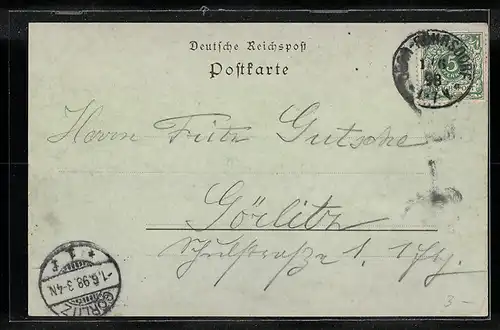 Deutsche Reichspost
Postkarte
1/6
98
5
Herrn Fritz Gutsche
Görlitz
Schulstraße 1,
* 1 f
-1.6.98.3-4N.
GÖRLITZ
3-